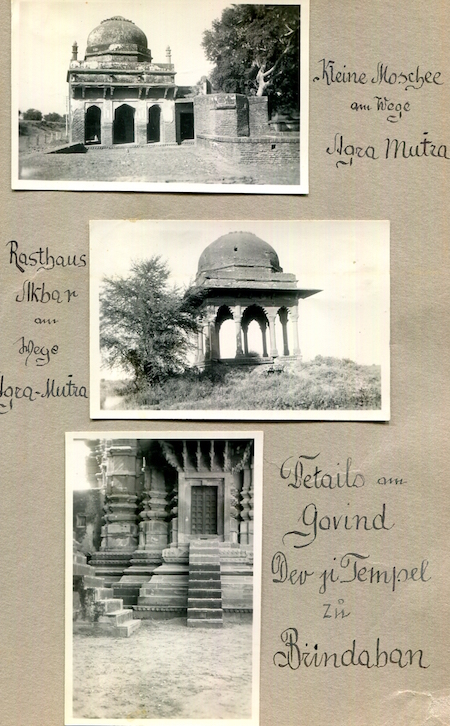 Kleine Moschee
am Wege
Agra Mutra
Rasthaus
Akbar
am
Wege
Agra-Mutra
Details am
Govind
Dev ji Tempel
zu
Brindaban